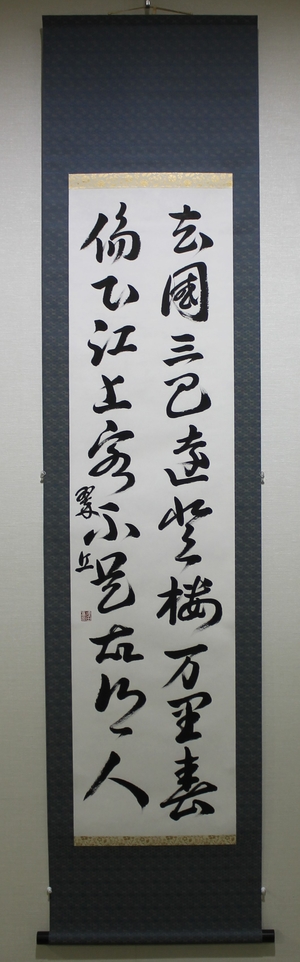 去國三巴遠登樓万里春
傷心江上客不是故郷人
翠丘